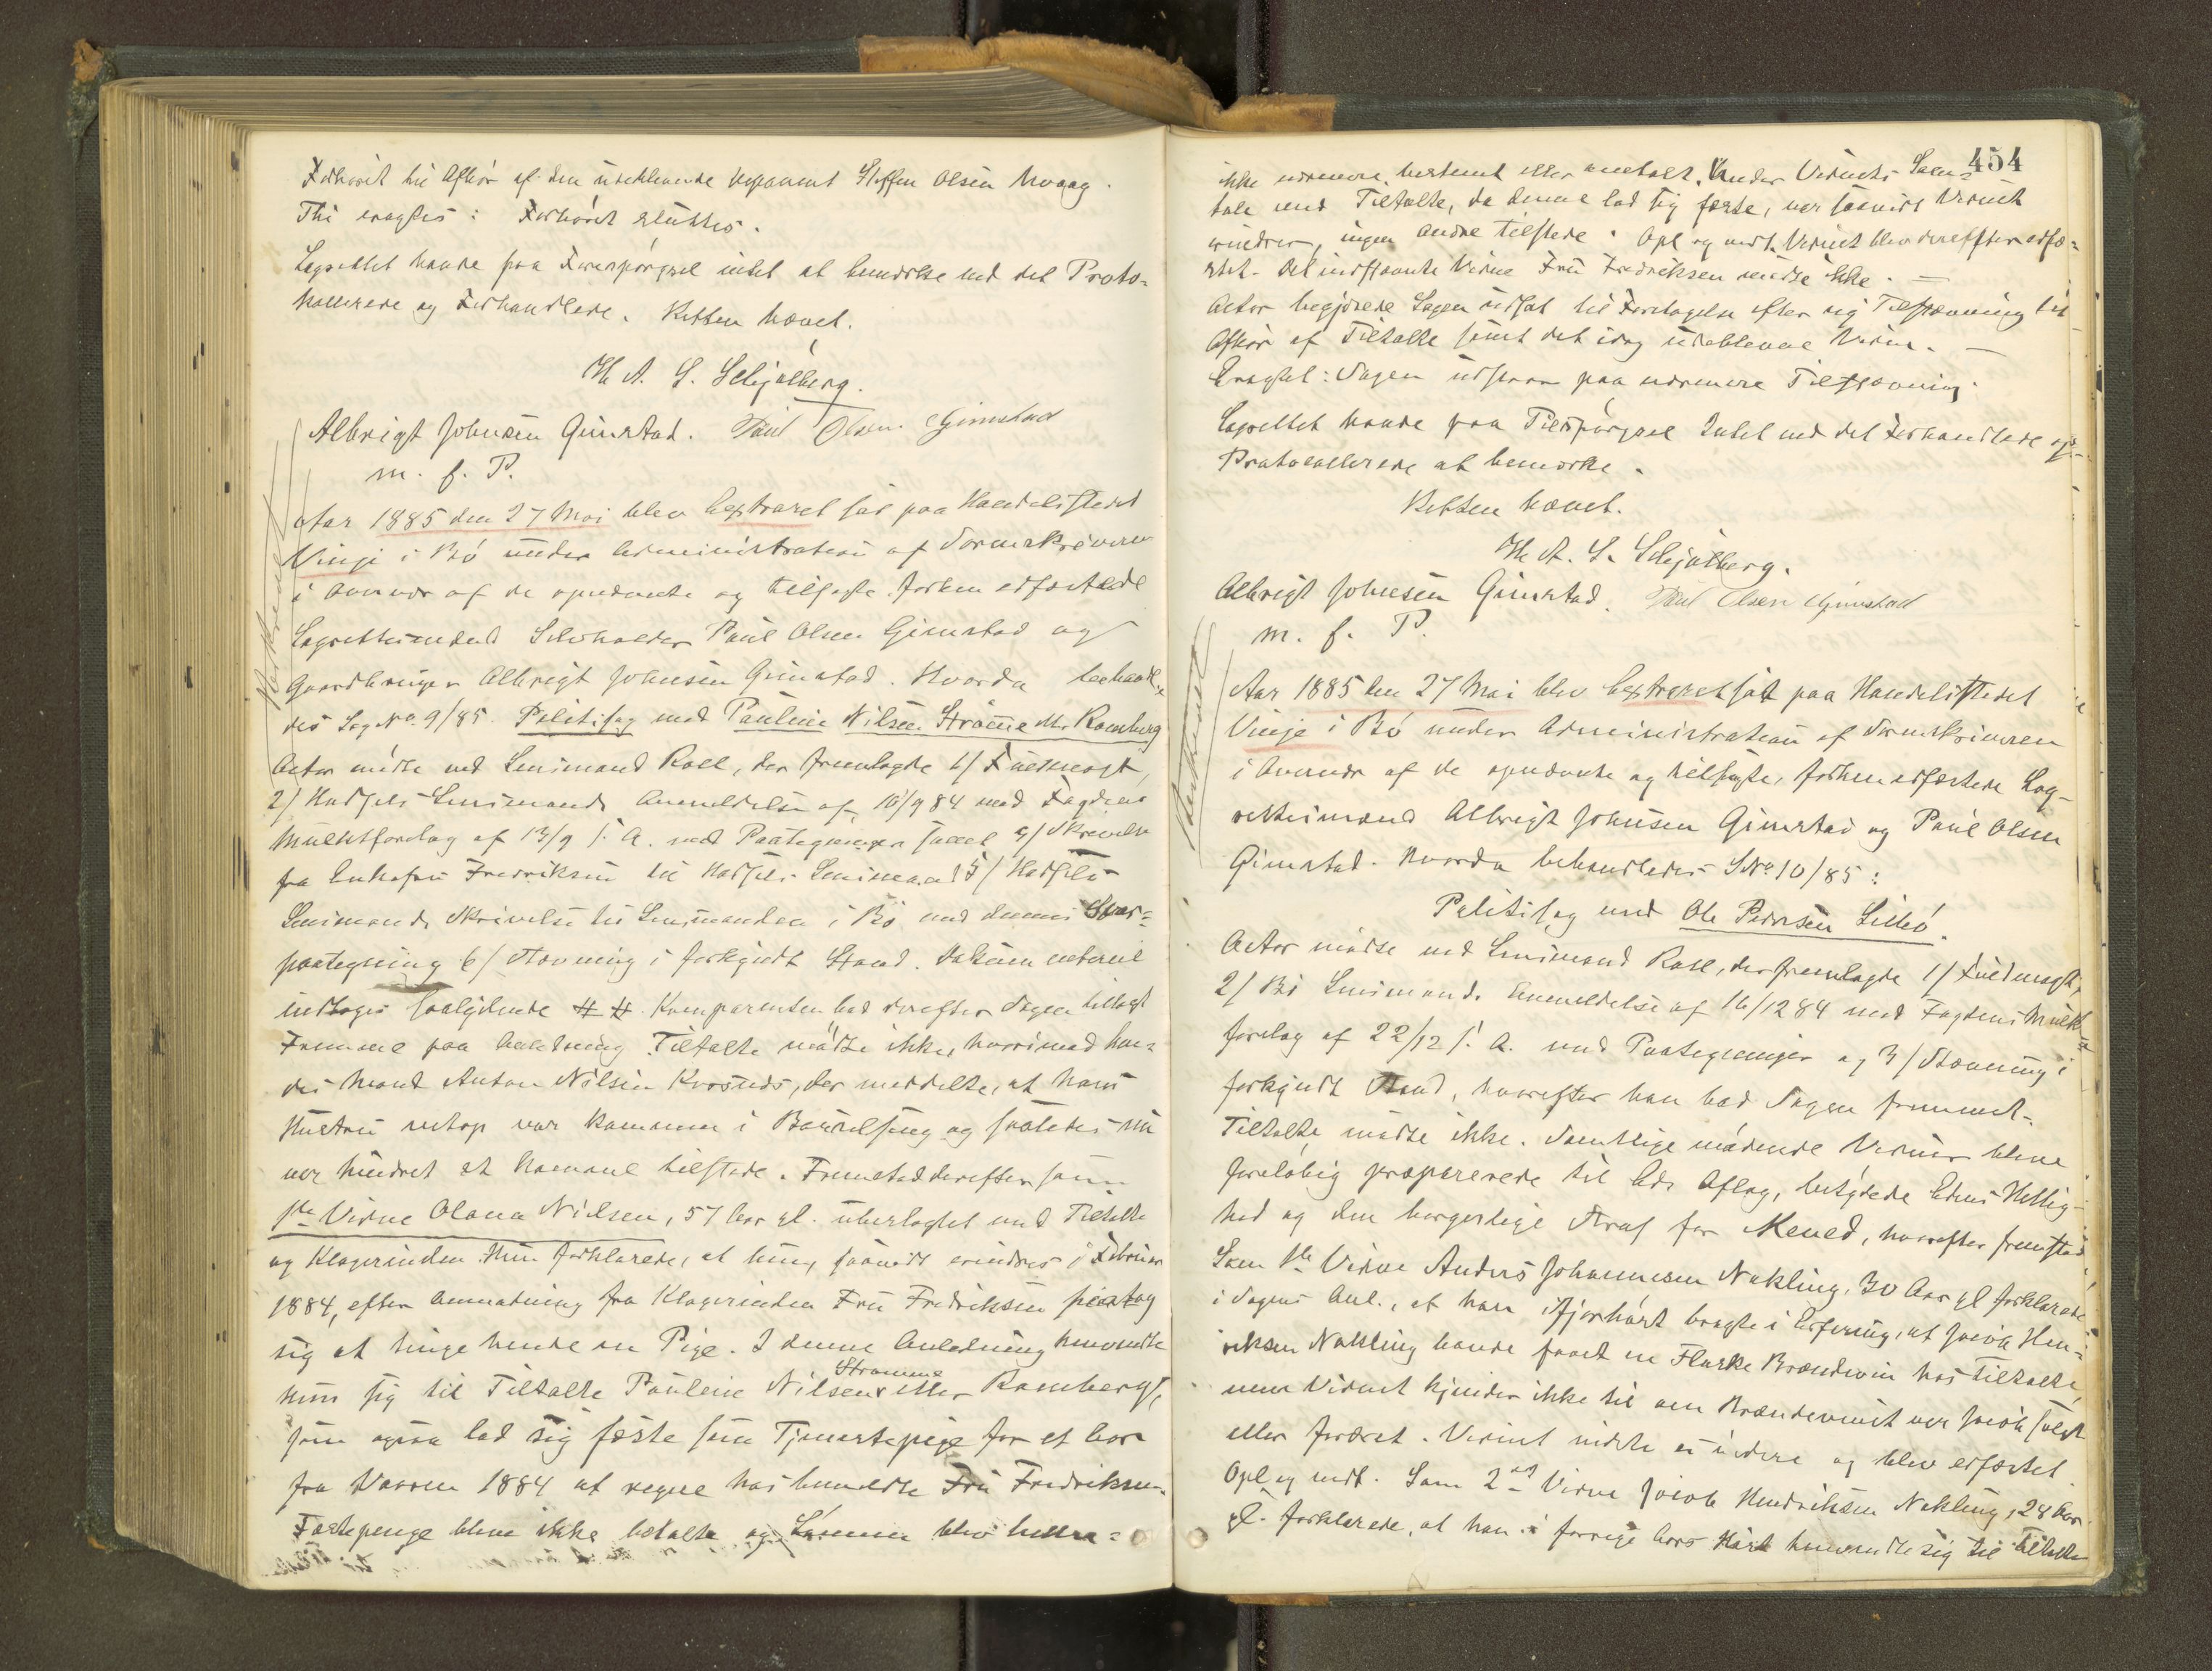 Forhöret til Afhör af den udeblevende Deponent Steffen Olsen Kraag.
Thi eragtes: Forhöret sluttes.
Lagrettet havde paa Forespörgsel intet at bemærke ved det Proto-
kollerede og Forhandlede. Retten hævet.
H. A. S. Schjølberg.
Albrigt Johnsen Gimstad. Paul Olsen Gimstad
m. f. P.
Aar 1885 den 27 Mai blev Extraret sat paa Handelsstedet
Vinje i Bö under Administration af Sorenskriveren
i Overvær af de opnævnte og tilsagte forhen edfæstede
Lagrettesmænd Selveholder Paul Olsen Gimstad og
Gaardbruger Albrigt Johnsen Gimstad. Hvorda behandle-
des Sag No 9/85. Politisag mod Pauline Nilsen Strömme eller Ramberg
Actor mödte ved Lensmand Roll, der fremlagde 1/ Fuldmagt,
2/ Hadsels Lensmands Anmeldelse af 10/9 84 med Fogdens
Mulktforelag af 13/9 s. A. med Paategninger samt 4/ Skrivelse
fra Enkefru Fredriksen til Hadsels Lensmand 5/ Hadsels
Lensmands Skrivelse til Lensmanden i Bö med dennes Svar-
paategning 6/ Stævning i forkyndt Stand. Dokumenterne
indtages saalydende # #. Komparenten bad derefter Sagen tillagt
Fremme paa Anledning. Tiltalte mödte ikke, hvorimod hen-
des Mand Anton Nilsen Kvosnes, der meddelte, at hans
Hustru netop var kommen i Barselseng og saaledes nu
var hindret at komme tilstede. Fremstod derefter som
1ste Vidne Olava Nielsen, 57 Aar gl. ubeslægtet med Tiltalte
og Klagerinden. Hun forklarede, at hun, saavidt erindres i Februar
1884, efter Anmodning fra Klagerinden Fru Fredriksen paatog
sig at tinge hende en Pige. I denne Anledning henvendte
Strømme
hun sig til Tiltalte Pauline Nilsen eller Ramberg,
som ogsaa lod sig fæste som Tjenestepige for et Aar
fra Vaaren 1884 at regne hos bemeldte Fru Fredriksen.
Fæstepenge bleve ikke betalte og Lönnen blev heller-
454
ikke nærmere bestemt eller omtalt. Under Vidnets Sam-
tale med Tiltalte, da denne lod sig fæste, var saavidt Vidnet
erindrer, ingen andre tilstede. Opl og vedt. Vidnet blev derefter edfæ-
stet. Det indstævnte Vidne Fru Fredriksen mødte ikke. —
Actor begjærede Sagen udsat til Foretagelse efter ny Tilstævning til
Afhör af Tiltalte samt det idag udeblevne Vidne. —
Eragtet: Sagen udstaar paa nærmere Tilstævning.
Lagrettet havde paa Tilspörgsel Intet ved det Forhandlede og
Protocollerede at bemærke.
Retten hævet.
H. A. S. Schjølberg.
Albrigt Johnsen Gimstad. Paul Olsen Gimstad
m. f. P.
Aar 1885 den 27 Mai blev Extraret sat paa Handelsstedet
Vinje i Bö under Administration af Sorenskriveren
i Overvær af de opnævnte og tilsagte, forhen edfæstede Lag-
rettesmænd Albrigt Johnsen Gimstad og Paul Olsen
Gimstad. Hvorda behandledes S No 10/85:
Politisag mod Ole Pedersen Lilleö.
Actor mödte ved Lensmand Roll, der fremlagde 1/ Fuldmagt,
2/ Bö Lensmands Anmeldelse af 16/12 84 med Fogdens Mulkt
forelag af 22/12 s. A. med Paategninger og 3/ Stævning i
forkyndt Stand, hvorefter han bad Sagen fremmet.
Tiltalte mödte ikke. Samtlige mödende Vidner bleve
foreløbig præparerede til Eds Aflæg, betydede Edens Hellig-
hed og den borgerlige Straf for Mened, hvorefter fremstod
Som 1ste Vidne Anders Johannesen Nykling, 30 Aar gl forklarede
i Sagens Anl., at han ifjorhöst bragte i Erfaring, at Jacob Hen-
riksen Nykling havde faaet en Flaske Brændevin hos Tiltalte,
men Vidnet kjender ikke til om Brændevinet var Jacob solgt
eller foræret. Vidnet vidste ei videre og blev edfæstet.
Opl og vedt. Som 2det Vidne Jacob Hendriksen Nykling, 28 Aar
gl. forklarede, at han i forrige Aars Höst henvendte sig til Tiltalte